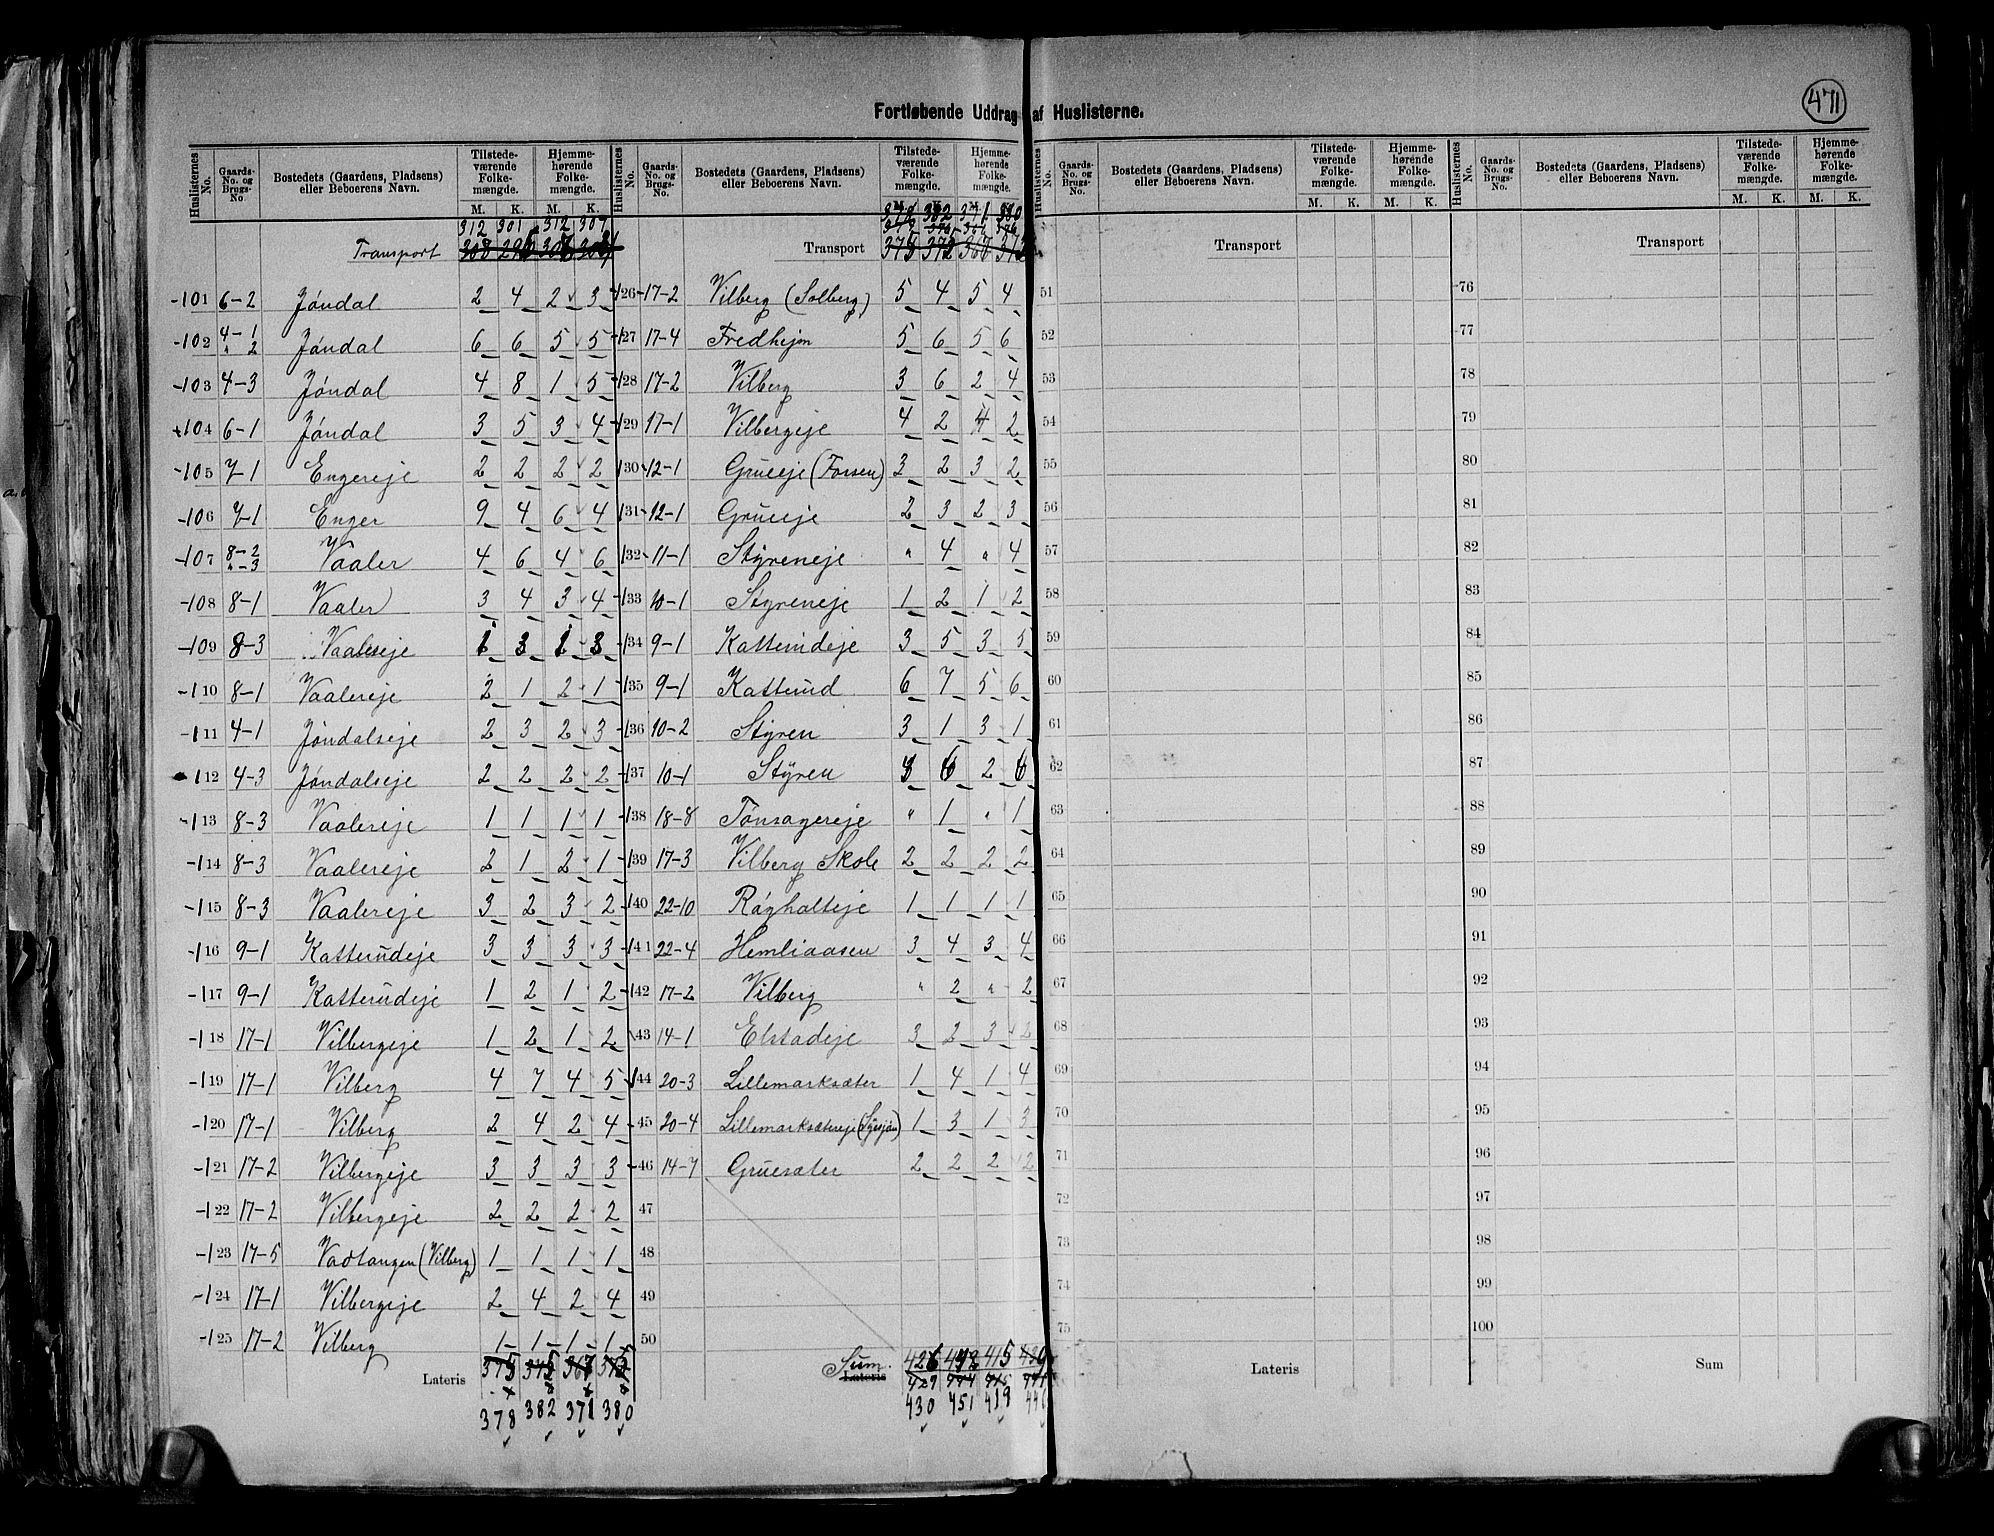 471
Fortløbende Uddrag af Huslisterne.
Huslisternes No. Gaards-No. og Brugs-No Bostedets (Gaardens, Pladsens) eller Beboerens Navn. Tilstedeværende Folkemængde. M. K. Hjemmehørende Folkemængde. M. K.
312 301 312 307
Transport
101 6-2 Jøndal 2 4 2 3
102 4-1 " 2 Jøndal 6 6 5 5
103 4-3 Jøndal 4 8 1 5
104 6-1 Jøndal 3 5 3 4
105 7-1 Engereje 2 2 2 2
106 7-1 Enger 9 4 6 4
107 8-2 " -3 Vaaler 4 6 4 6
108 8-1 Vaaler 3 4 3 4
109 8-3 Vaalereje 1 3 1 3
110 8-1 Vaalereje 2 1 2 1
111 4-1 Jøndalseje 2 3 2 3
112 4-3 Jøndalseje 2 2 2 2
113 8-3 Vaalereje 1 1 1 1
114 8-3 Vaalereje 2 1 2 1
115 8-3 Vaalereje 3 2 3 2
116 9-1 Katterudeje 3 3 3 3
117 9-1 Katterudeje 1 2 1 2
118 17-1 Vilbergeje 1 2 1 2
119 17-1 Vilberg 4 7 4 5
120 17-1 Vilberg 2 4 2 4
121 17-2 Vilbergeje 3 3 3 3
122 17-2 Vilbergeje 2 2 2 2
123 17-5 Vadtangen (Vilberg) 1 1 1 1
124 17-1 Vilbergeje 2 4 2 4
125 17-2 Vilberg 1 1 1 1
Lateris
378 382 371 380
Huslisternes No. Gaards-No. og Brugs-No. Bostedets (Gaardens, Pladsens) eller Beboerens Navn. Tilstedeværende Folkemængde. Hjemmehørende Folkemængde.
378 382 371 380
Transport
126 17-2 Vilberg (Solberg) 5 4 5 4
127 17-4 Fredhejm 5 6 5 6
128 17-2 Vilberg 3 6 2 4
129 17-1 Vilbergeje 4 2 4 2
130 12-1 Grueeje (Forsen) 3 2 3 2
131 12-1 Grueeje 2 3 2 3
132 11-1 Styreneje " 4 " 4
133 10-1 Styreneje 1 2 1 2
134 9-1 Katterudeje 3 5 3 5
135 9-1 Katterud 6 7 5 6
136 10-2 Styren 3 1 3 1
137 10-1 Styren 6 2 6
138 18-8 Tønsagereje " 1 " 1
139 17-3 Vilberg Skole 2 2 2 2
140 22-10 Røgholteje 1 1 1 1
141 22-4 Hemliaasen 3 4 3 4
142 17-2 Vilberg " 2 " 2
143 14-1 Elstadeje 3 2 3 2
144 20-3 Lillemarksæter 1 4 1 4
45 20-4 Lillemarksætereje 1 3 1 3
46 14-7 Gruesæter 2 2 2 2
47
48
49
50
Sum. Lateris
430 451 419 446
Huslisternes No. Gaards-No. og Brugs-No. Bostedets (Gaardens, Pladsens) eller Beboerens Navn. Tilstedeværende Folkemængde. M. K. Hjemmehørende Folkemængde. M. K.
Transport
51
52
53
54
55
56
57
58
59
60
61
62
63
64
65
66
67
68
69
70
71
72
73
74
75
Lateris
Huslisternes No. Gaards-No. og Brugs-No. Bostedets (Gaardens, Pladsens) eller Beboerens Navn. Tilstedeværende Folkemængde. M. K. Hjemmehørende Folkemængde. M. K.
Transport
76
77
78
79
80
81
82
83
84
85
86
87
88
89
90
91
92
93
94
95
96
97
98
99
100
Sum